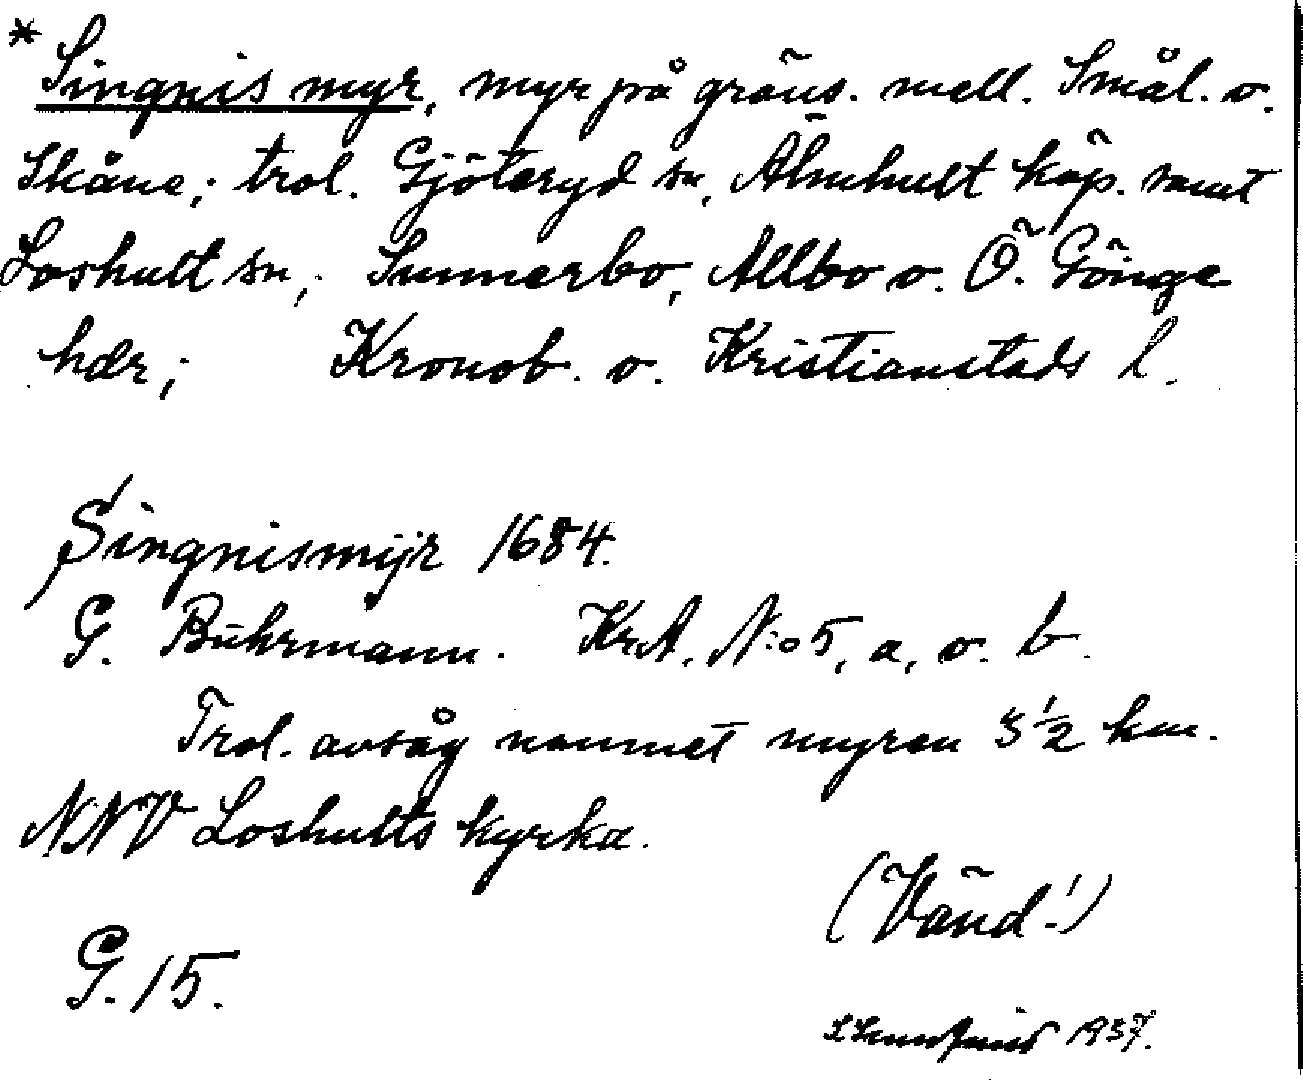 * Singnis myr, myr på gräns. mell. Smål. o.
Skåne; trol. Gjöteryd sn, Älmhult köp. samt
Loshult sn; Sunnerbo, Allbo o. Ö. Göinge
hdr; Kronob. o. Kristianstads l.
Singnismijr 1684.
G. Buhrmann. KrA, N:o 5, a, o. b.
Trol. avsåg namnet myren 3 1/2 km.
NNV Loshults kyrka.
(Vänd!)
G. 15.
1937.